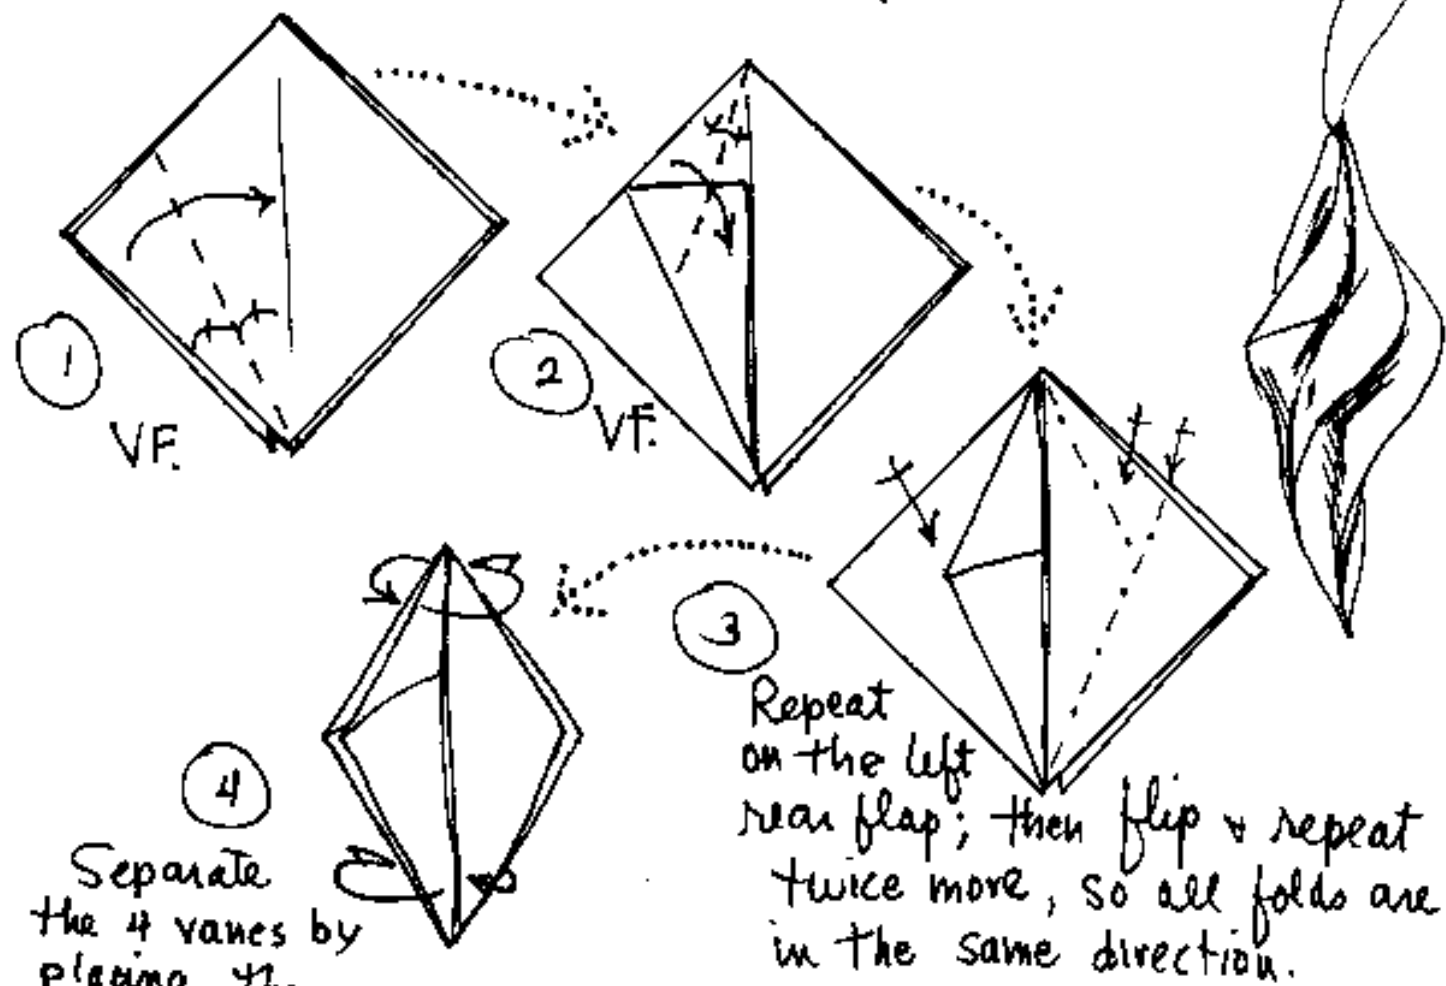 1
VF.
2
VF.
3
Repeat
on the left
rear flap; then flip & repeat
twice more, so all folds are
in the same direction.
4
Separate
the 4 vanes by
placing the